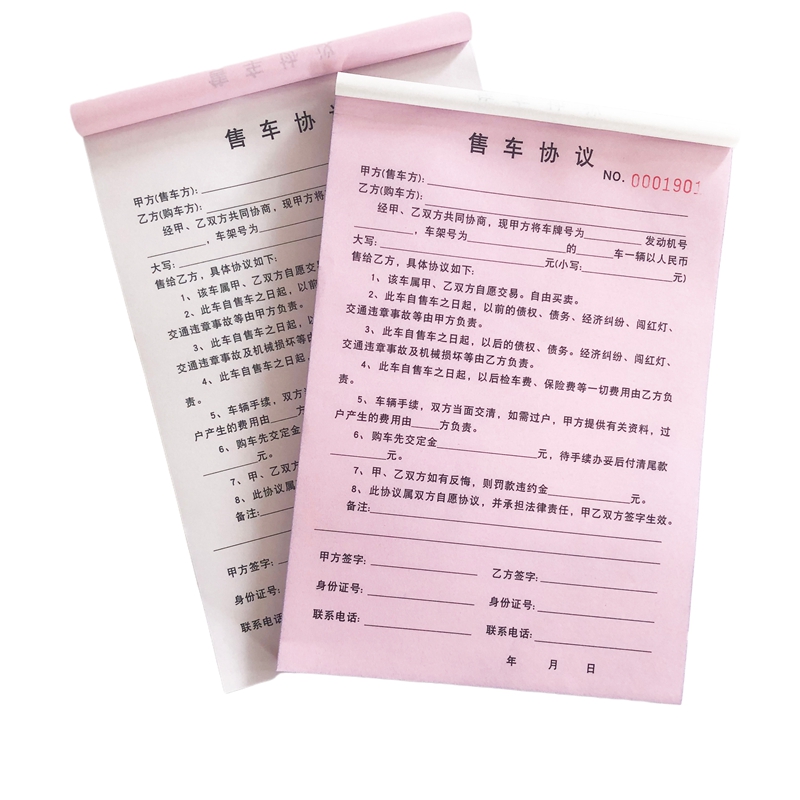 售车协
甲方(售车方):
乙方(购车方):
经甲、乙双方共同协商，现甲方将
，车架号为
大写:
售给乙方，具体协议如下:
1、该车属甲、乙双方自愿交易
2、此车自售车之日起，以前
交通违章事故等由甲方负责。
3、此车自售车之日起，以
交通违章事故及机械损坏等由
4、此车自售车之日起，
责。
5、车辆手续，双方
户产生的费用由 方
6、购车先交定金
元。
7、甲、乙双方
8、此协议属
备注:
甲方签字:
身份证号:
联系电话:
售车协议
NO. 0001901
甲方(售车方):
乙方(购车方):
经甲、乙双方共同协商，现甲方将车牌号为 发动机号
，车架号为 的 车一辆以人民币
大写: 元(小写: 元)
售给乙方，具体协议如下:
1、该车属甲、乙双方自愿交易。自由买卖。
2、此车自售车之日起，以前的债权、债务、经济纠纷、闯红灯、
交通违章事故等由甲方负责。
3、此车自售车之日起，以后的债权、债务。经济纠纷、闯红灯、
交通违章事故及机械损坏等由乙方负责。
4、此车自售车之日起，以后检车费、保险费等一切费用由乙方负
责。
5、车辆手续，双方当面交清，如需过户，甲方提供有关资料，过
户产生的费用由 方负责。
6、购车先交定金 元，待手续办妥后付清尾款
元。
7、甲、乙双方如有反悔，则罚款违约金 元。
8、此协议属双方自愿协议，并承担法律责任，甲乙双方签字生效。
备注:
甲方签字: 乙方签字:
身份证号: 身份证号:
联系电话: 联系电话:
年 月 日